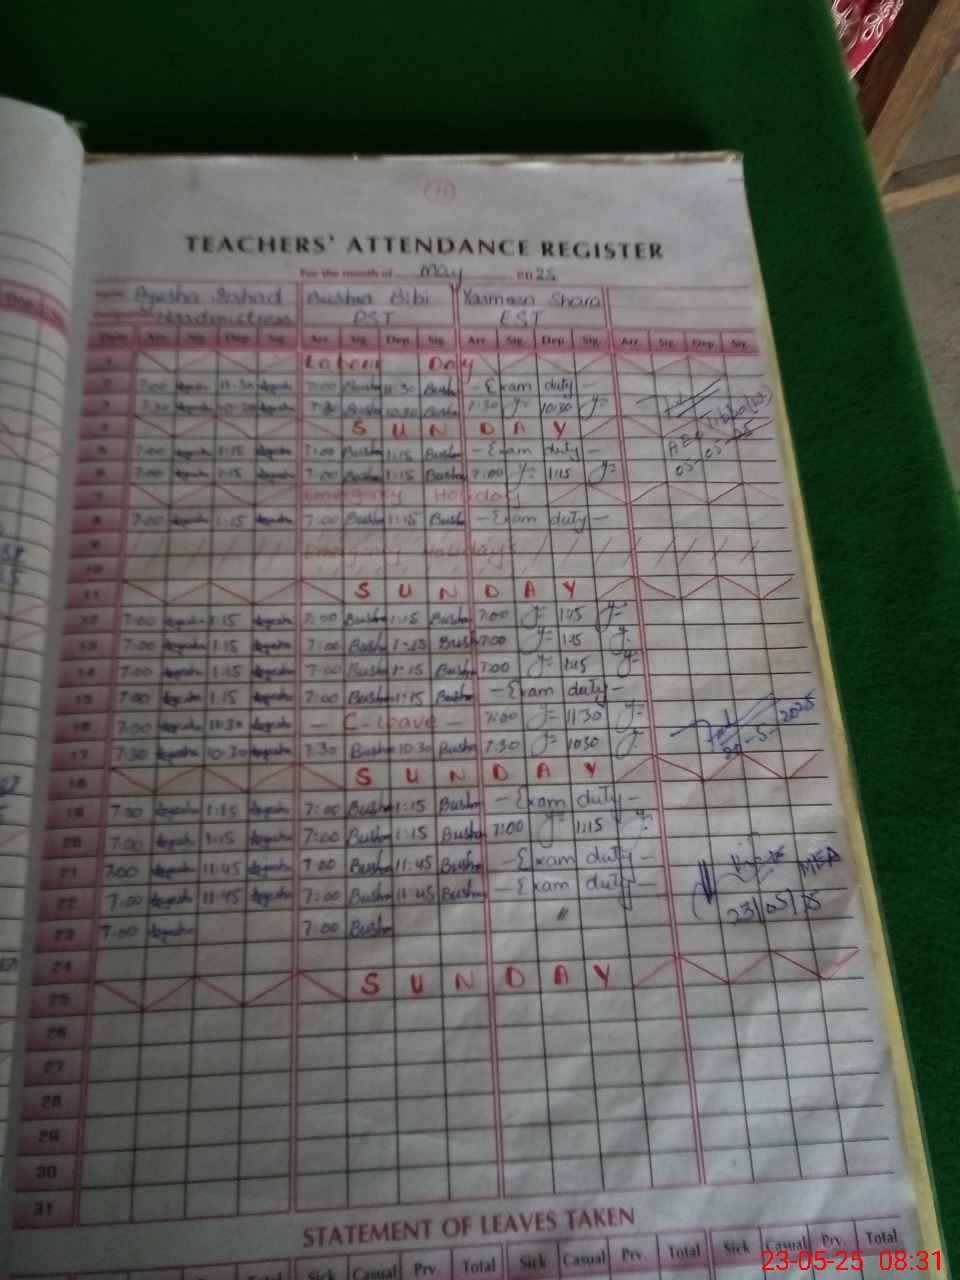 11
TEACHERS' ATTENDANCE REGISTER
For the month of May 2025
Name Ayesha Irshad Bushra Bibi Yasmeen
Headmistress PST EST
Date Arr. Sig. Dep. Sig. Arr. Sig. Dep. Sig. Arr. Sig. Dep. Sig. Arr. Sig. Dep. Sig.
1 Labour Day
2 7:00 Ayesha 11:30 Ayesha 7:00 Bushra 11:30 Bushra - Exam duty -
3 7:30 Ayesha 10:30 Ayesha 7:30 Bushra 10:30 Bushra 7:30 10:30
4 SUNDAY
5 7:00 Ayesha 1:15 Ayesha 7:00 Bushra 1:15 Bushra - Exam duty -
05-05-25
6 7:00 Ayesha 1:15 Ayesha 7:00 Bushra 1:15 Bushra 7:00 1:15
7 Emergency Holiday
8 7:00 Ayesha 1:15 Ayesha 7:00 Bushra 1:15 Bushra - Exam duty -
9 Emergency Holidays
10
11 SUNDAY
12 7:00 Ayesha 1:15 Ayesha 7:00 Bushra 1:15 Bushra 7:00 1:15
13 7:00 Ayesha 1:15 Ayesha 7:00 Bushra 1:15 Bushra 7:00 1:15
14 7:00 Ayesha 1:15 Ayesha 7:00 Bushra 1:15 Bushra 7:00 1:15
15 7:00 Ayesha 1:15 Ayesha 7:00 Bushra 1:15 Bushra - Exam duty -
16 7:00 Ayesha 11:30 Ayesha - C-leave - 7:00 11:30
17 7:30 Ayesha 10:30 Ayesha 7:30 Bushra 10:30 Bushra 7:30 10:30 20-5-2025
18 SUNDAY
19 7:00 Ayesha 1:15 Ayesha 7:00 Bushra 1:15 Bushra - Exam duty -
20 7:00 Ayesha 1:15 Ayesha 7:00 Bushra 1:15 Bushra 7:00 1:15
21 7:00 Ayesha 11:45 Ayesha 7:00 Bushra 11:45 Bushra - Exam duty - MEA
22 7:00 Ayesha 11:45 Ayesha 7:00 Bushra 11:45 Bushra - Exam duty - 23/05/25
23 7:00 Ayesha 7:00 Bushra "
24
25 SUNDAY
26
27
28
29
30
31
STATEMENT OF LEAVES TAKEN
Total Sick Casual Prv. Total Sick Casual Prv. Total Sick Casual Prv. Total
23-05-25 08:31